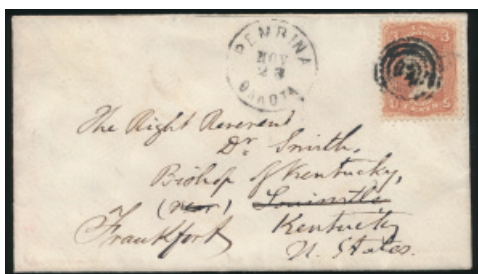 PEMBINA
NOV
DAKOTA
3 3
U S
The Right Reverend
Dr. Smith,
Bishop of Kentucky,
(near) Louisville
Frankfort Kentucky
U. States.